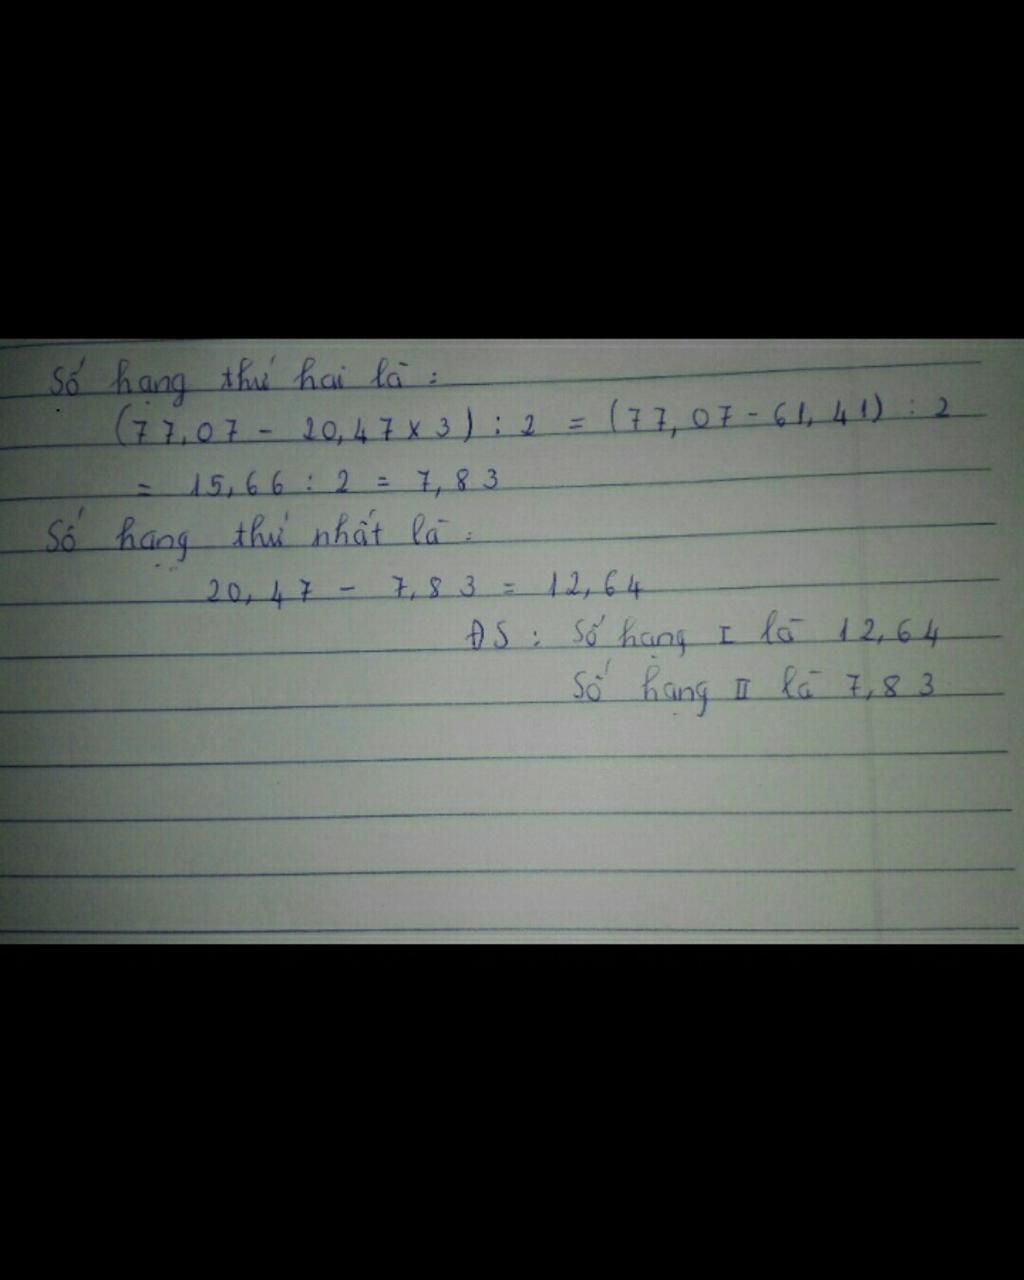 Số hạng thứ hai là :
(77,07 - 20,47 x 3) : 2 = (77,07 - 61,41) : 2
= 15,66 : 2 = 7,83
Số hạng thứ nhất là :
20,47 - 7,83 = 12,64
ĐS : Số hạng I là 12,64
Số hạng II là 7,83